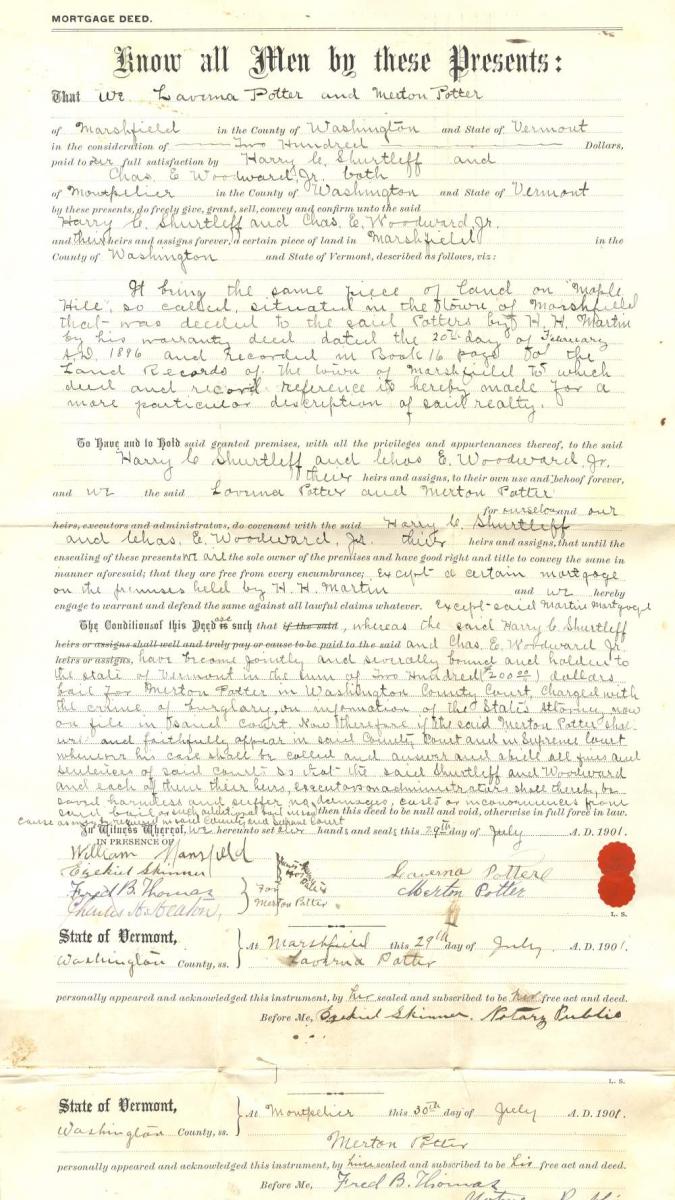 MORTGAGE DEED.
Know all Men by these Presents:
That We Laverna Potter and Merton Potter
of Marshfield in the County of Washington and State of Vermont
in the consideration of Two Hundred Dollars,
paid to our full satisfaction by Harry C. Shurtleff and
Chas. E Woodward, Jr. both
of Montpelier in the County of Washington and State of Vermont
by these presents, do freely give, grant, sell, convey and confirm unto the said
Harry C. Shurtleff and Chas. E. Woodward Jr.
and their heirs and assigns forever, a certain piece of land in Marshfield in the
County of Washington and State of Vermont, described as follows, viz:
It being the same piece of land on "Maple
Hill", so called, situated in the town of Marshfield
that was deeded to the said Potters by H. H. Martin
by his warranty deed dated the 20th day of February
A.D. 1896 and recorded in Book 16 page of the
Land Records of the town of Marshfield to which
deed and record reference is hereby made for a
more particular description of said realty.
To Have and to Hold said granted premises, with all the privileges and appurtenances thereof, to the said
Harry C Shurtleff and Chas E. Woodward, Jr.
their heirs and assigns, to their own use and behoof forever,
and we the said Laverna Potter and Merton Potter
for ourselves and our
heirs, executors and administrators, do covenant with the said Harry C. Shurtleff
and Chas. E. Woodward, Jr. their heirs and assigns, that until the
ensealing of these presents we are the sole owner of the premises and have good right and title to convey the same in
manner aforesaid; that they are free from every encumbrance; Except a certain mortgage
on the premises held by H. H. Martin and we hereby
engage to warrant and defend the same against all lawful claims whatever. Except said Martin Mortgage
The Condition of this Deed is such that if the said, whereas the said Harry C. Shurtleff
heirs or assigns shall well and truly pay or cause to be paid to the said and Chas. E. Woodward Jr.
heirs or assigns, have become jointly and severally bound and holden to
the state of Vermont in the sum of Two Hundred ($200.00) dollars
bail for Merton Potter in Washington County Court, charged with
the crime of burglary, on information of the States Attorney, now
on file in said court. Now therefore if the said Merton Potter shall
well and faithfully appear in said County Court and in Supreme Court
whenever his case shall be called and answer and abide all fines and
sentences of said court so that the said Shurtleff and Woodward
and each of them their heirs, executors or administrators shall thereby be
saved harmless and suffer no damages, costs or inconveniences from
said bail or such additional bail in said then this deed to be null and void, otherwise in full force in law.
cause as may be required in said County and Supreme Court
In Witness Whereof, we hereunto set our hands and seals this 29th day of July A. D. 1901.
IN PRESENCE OF
William Mansfield
Ezekiel Skinner
Fred B. Thomas
Charles H. Heaton,
For
Merton Potter
Laverna Potter
Merton Potter
L. S.
State of Vermont,
Washington County, ss.
At Marshfield this 29th day of July A. D. 1901.
Laverna Potter
personally appeared and acknowledged this instrument, by her sealed and subscribed to be her free act and deed.
Before Me, Ezekiel Skinner. Notary Public
L. S.
State of Vermont,
Washington County, ss.
At Montpelier this 30th day of July A. D. 1901.
Merton Potter
personally appeared and acknowledged this instrument, by him sealed and subscribed to be his free act and deed.
Before Me, Fred B. Thomas
Notary Public